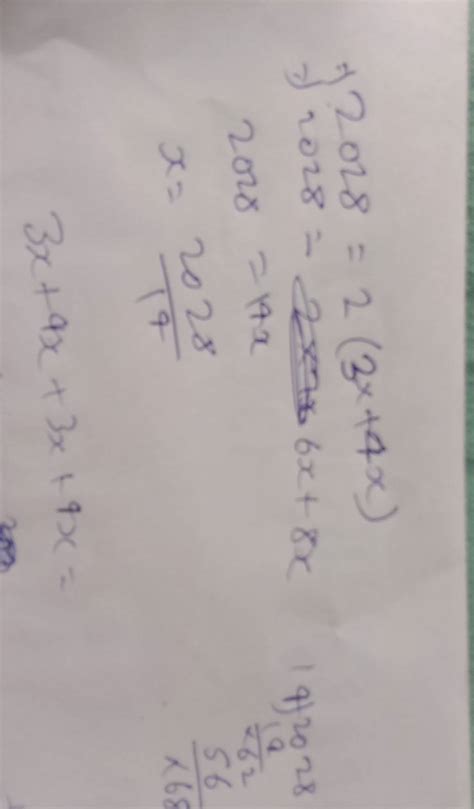 ⇒ 2028 = 2 (3x+4x)
⇒ 2028 = 6x + 8x
2028 = 14x
x = 2028
14
3x + 4x + 3x + 4x =
14) 2028
14
62
56
68